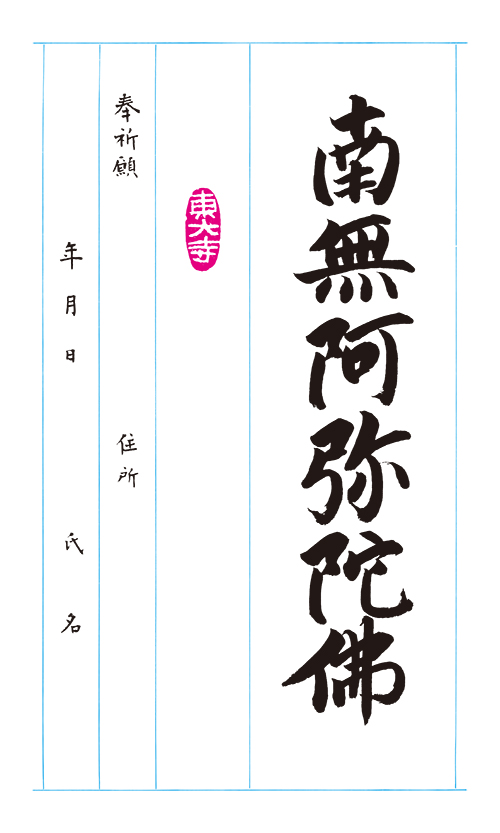 南無阿弥陀佛
東大寺
奉祈願 住所
年月日 氏名